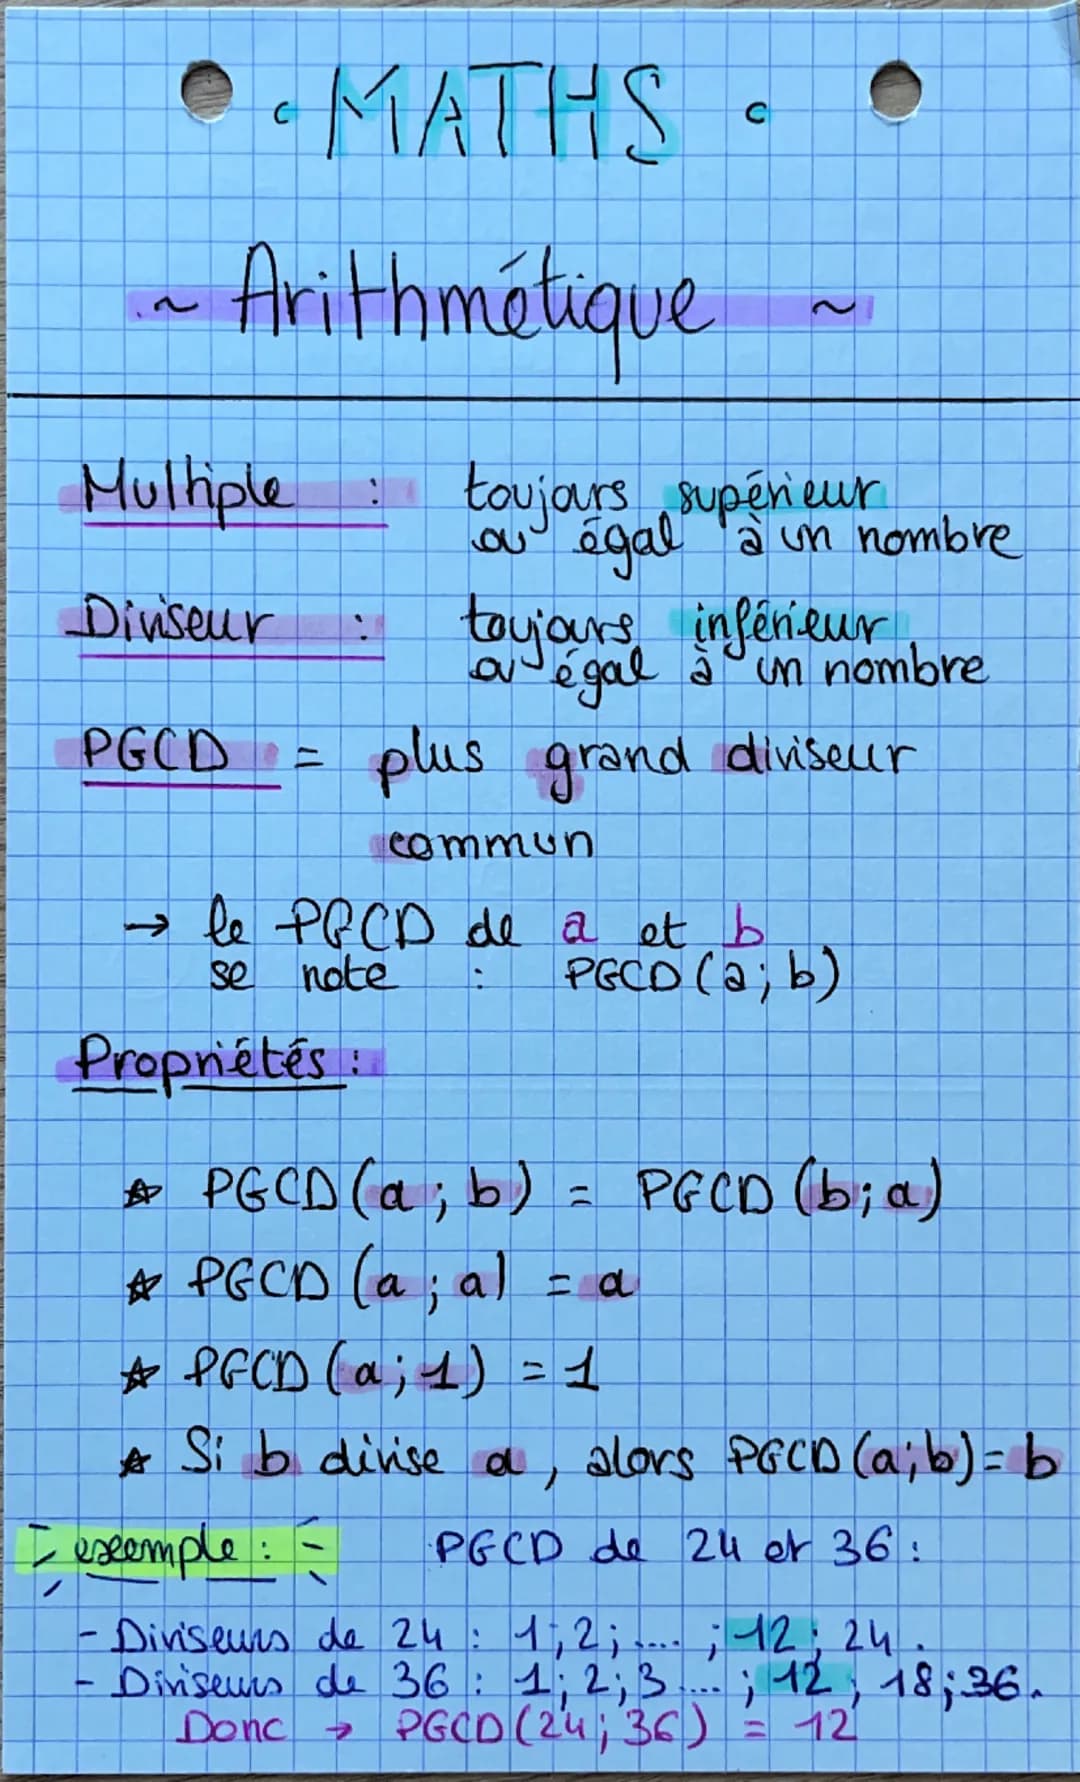 MATHS
~ Arithmétique ~
Multiple : toujours supérieur
ou égal à un nombre
Diviseur : toujours inférieur
ou égal à un nombre
PGCD = plus grand diviseur
commun
→ le PGCD de a et b
se note : PGCD (a; b)
Propriétés :
☆ PGCD (a ; b) = PGCD (b; a)
☆ PGCD (a ; a) = a
☆ PGCD (a; 1) = 1
☆ Si b divise a, alors PGCD (a; b) = b
exemple : PGCD de 24 et 36 :
- Diviseurs de 24 : 1; 2; .... ; 12; 24.
- Diviseurs de 36 : 1; 2; 3 .... ; 12; 18; 36.
Donc → PGCD (24; 36) = 12